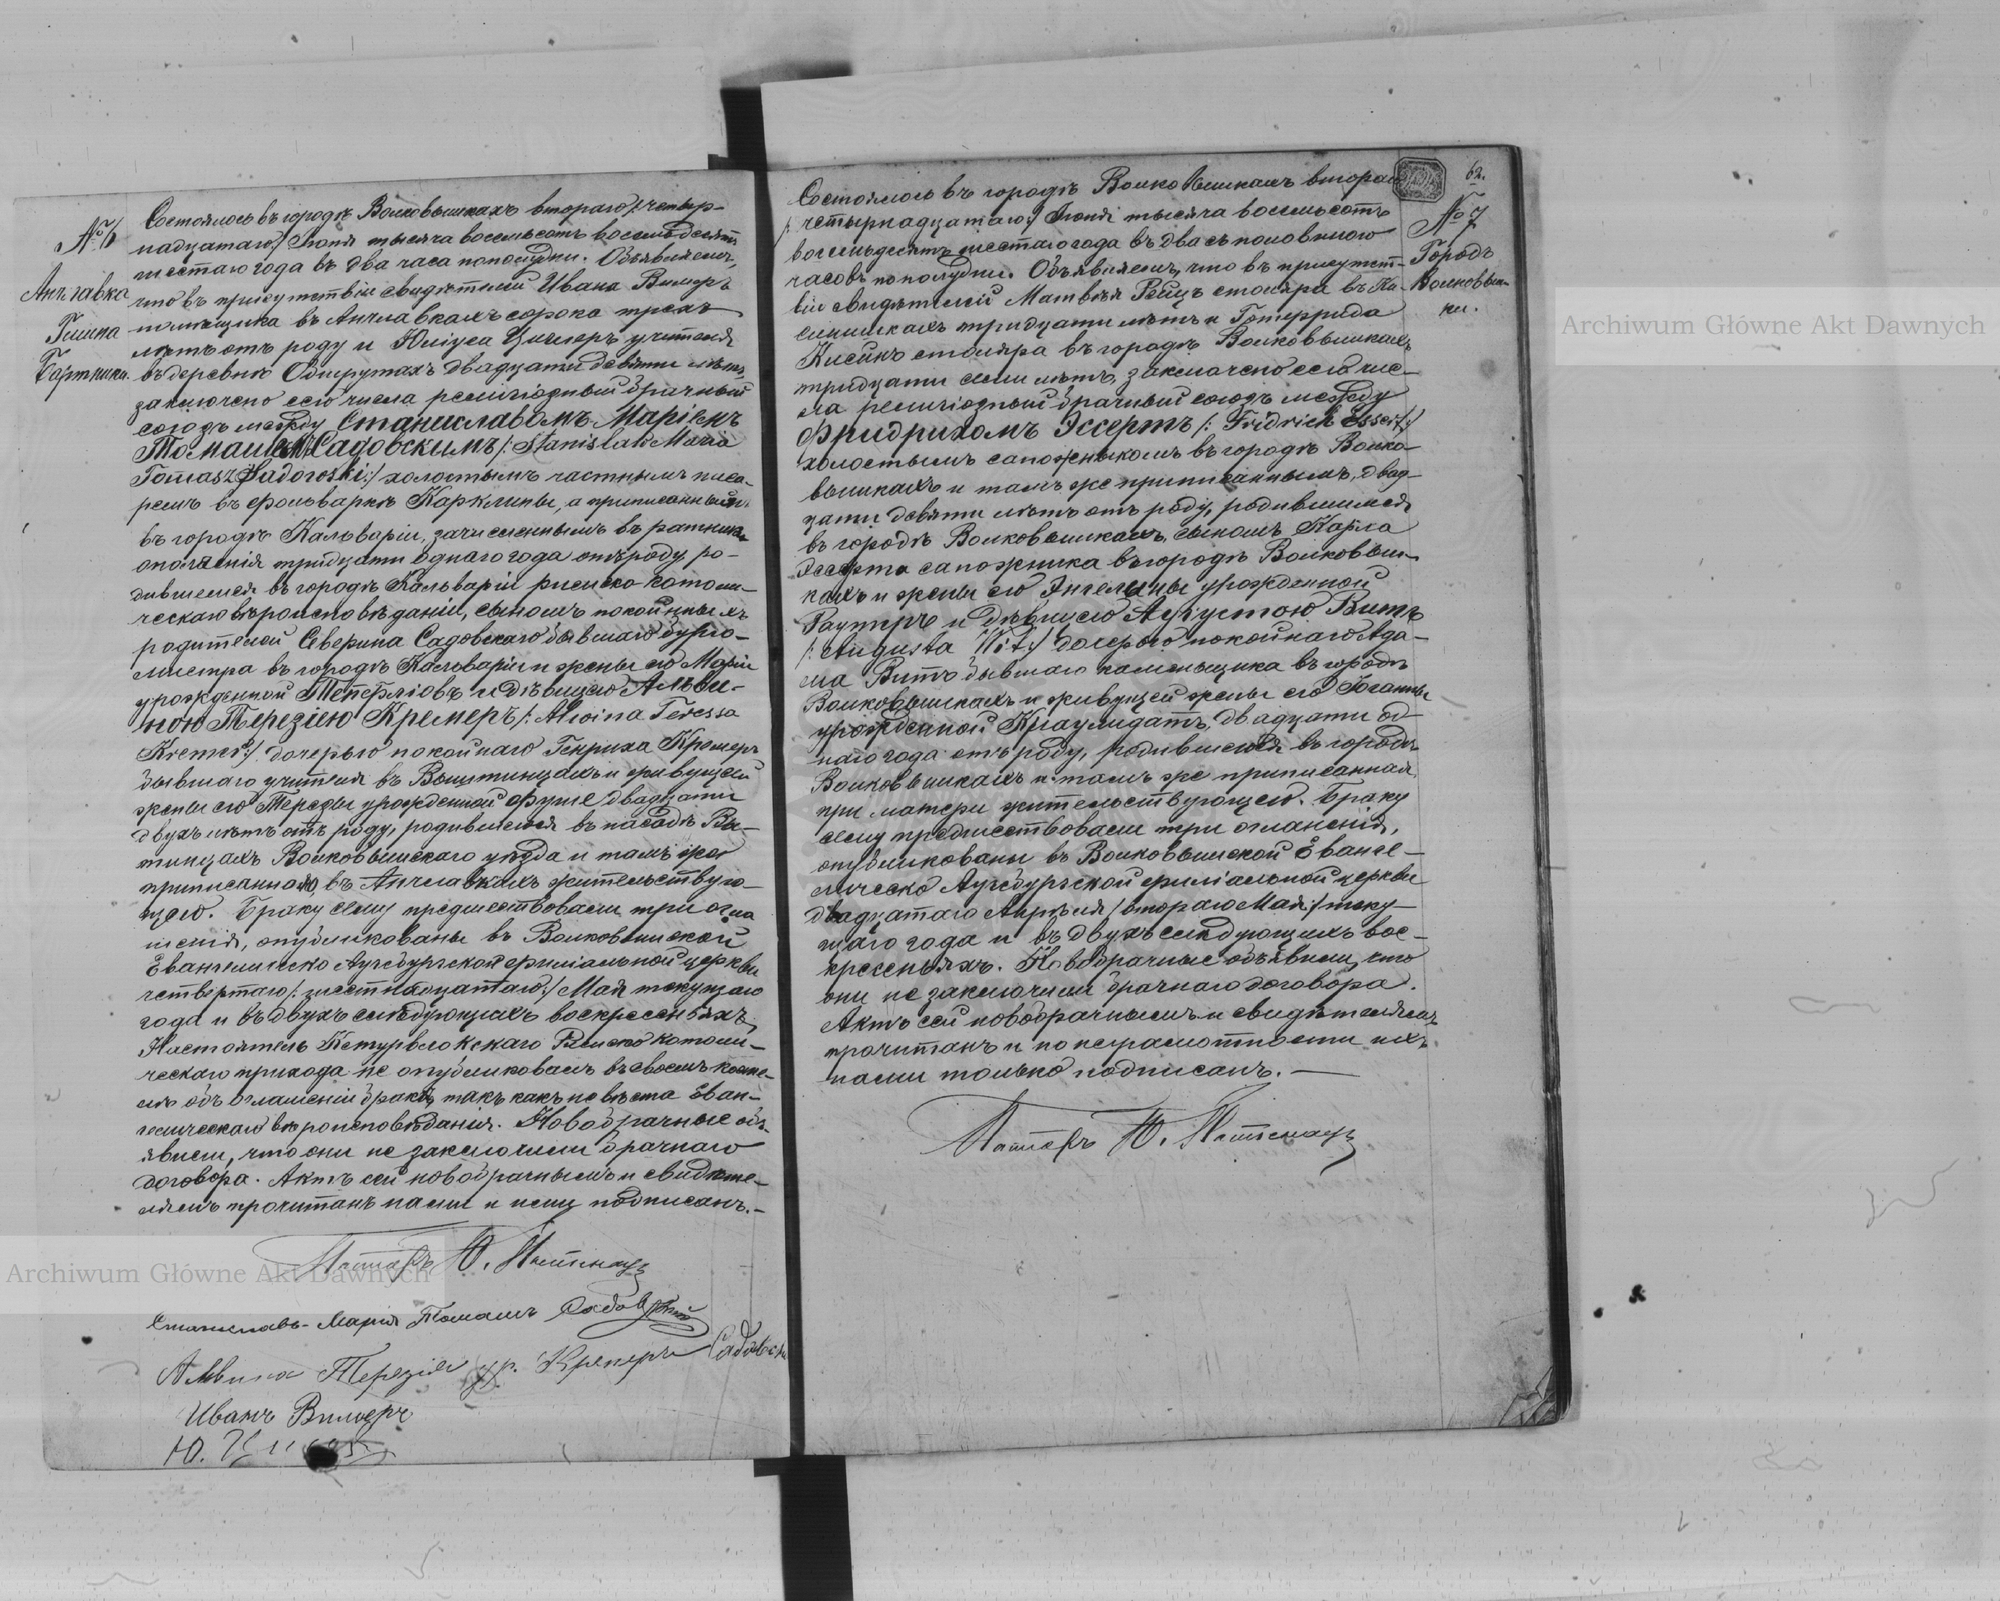 № 6
Анчлавка
Гмина
Бартники.
Состоялось въ городѣ Волковышкахъ втораго /: четыр-
надцатаго:/ Іюня тысяча восемьсотъ восемьдесятъ
шестаго года въ два часа пополудни. Объявляемъ,
что въ присутствіи свидѣтелей Ивана Вильеръ
помѣщика въ Анчлавкахъ сорока трехъ
лѣтъ отъ роду и Юліуса учителя
въ деревнѣ двадцати девяти лѣтъ,
заключено сего числа религіозный брачный
союзъ между Станиславомъ Маріемъ
Томашемъ Садовскимъ /: Stanislaw Maria
Tomasz Sadowski:/ холостымъ частнымъ писа-
ремъ въ фольваркѣ Карклины, а приписаннымъ
въ городѣ Кальваріи, зачисленнымъ въ ратники
ополченія тридцати одного года отъ роду, ро-
дившемся въ городѣ Кальваріи римско католи-
ческаго вѣроисповѣданія, сыномъ покойныхъ
родителей Северина Садовскаго бывшаго бурго-
мистра въ городѣ Кальваріи и жены его Маріи
урожденной и дѣвицею Альви-
ною Терезіею Кремеръ /: Alwina Teressa
Kremer:/ дочерью покойнаго Генриха Кремеръ
бывшаго учителя въ Выштинцахъ и живущей
жены его Терезы урожденной Функе двадцати
двухъ лѣтъ отъ роду, родившеюся въ посадѣ Вы-
тинцахъ Волковышскаго уѣзда и тамъ же
приписанною, въ Анчлавкахъ жительствую-
щею. Браку сему предшествовали три огла
шенія, опубликованы въ Волковышской
Евангелическо Аугсбургской филіальной церкви
четвертаго /: шестнадцатаго:/ Мая текущаго
года и въ двухъ слѣдующихъ воскресеньяхъ,
Настоятель Кетурвлокскаго Римско католи-
ческаго прихода не опубликовалъ въ своемъ косте-
лѣ объ оглашеніи брака, такъ какъ невѣста Еван-
гелическаго вѣроисповѣданія. Новобрачные объ-
явили, что они не заключили брачнаго
договора. Актъ сей новобрачнымъ и свидѣте-
лямъ прочитанъ нами и ими подписанъ.—
Пасторъ
Станиславъ-Марія Томашъ Садовскій
Альвина Терезія ур. Кремеръ Садовская
Иванъ Вильеръ
Ю.
62.
№ 7
Городъ
Волковыш-
ки.
Состоялось въ городѣ Волковышкахъ втораго
/: четырнадцатаго:/ Іюня тысяча восемьсотъ
восемьдесятъ шестаго года въ два съ половиною
часовъ пополудни. Объявляемъ, что въ присутст-
віи свидѣтелей Матвѣя Рейцъ столяра въ Ка-
тридцати лѣтъ и Готфрида
столяра въ городѣ Волковышкахъ
тридцати семи лѣтъ, заключено сего чис-
ла религіозный брачный союзъ между
Фридрихомъ Эссертъ /: Fridrich Essert:/
холостымъ сапожникомъ въ городѣ Волко-
вышкахъ и тамъ же приписаннымъ, двад-
цати девяти лѣтъ отъ роду, родившимся
въ городѣ Волковышкахъ, сыномъ Карла
Эссерта сапожника въ городѣ Волковыш-
кахъ и жены его Ангелины урожденной
и дѣвицею Августою Витъ
/: Augusta Wit:/ дочерью покойнаго Ада-
ма Витъ бывшаго каменьщика въ городѣ
Волковышкахъ и живущей жены его Іоганны
урожденной двадцати од-
наго года отъ роду, родившеюся въ городѣ
Волковышкахъ и тамъ же приписанная,
при матери жительствующею. Браку
сему предшествовали три оглашенія,
опубликованы въ Волковышской Еванге-
лическо Аугсбургской филіальной церкви
двадцатаго Апрѣля /: втораго Мая:/ теку-
щаго года и въ двухъ слѣдующихъ вос-
кресеньяхъ. Новобрачные объявили, что
они не заключили брачнаго договора.
Актъ сей новобрачнымъ и свидѣтелямъ
прочитанъ и по неграмотности ихъ
нами только подписанъ.—
Пасторъ
Archiwum Główne Akt Dawnych
Archiwum Główne Akt Dawnych